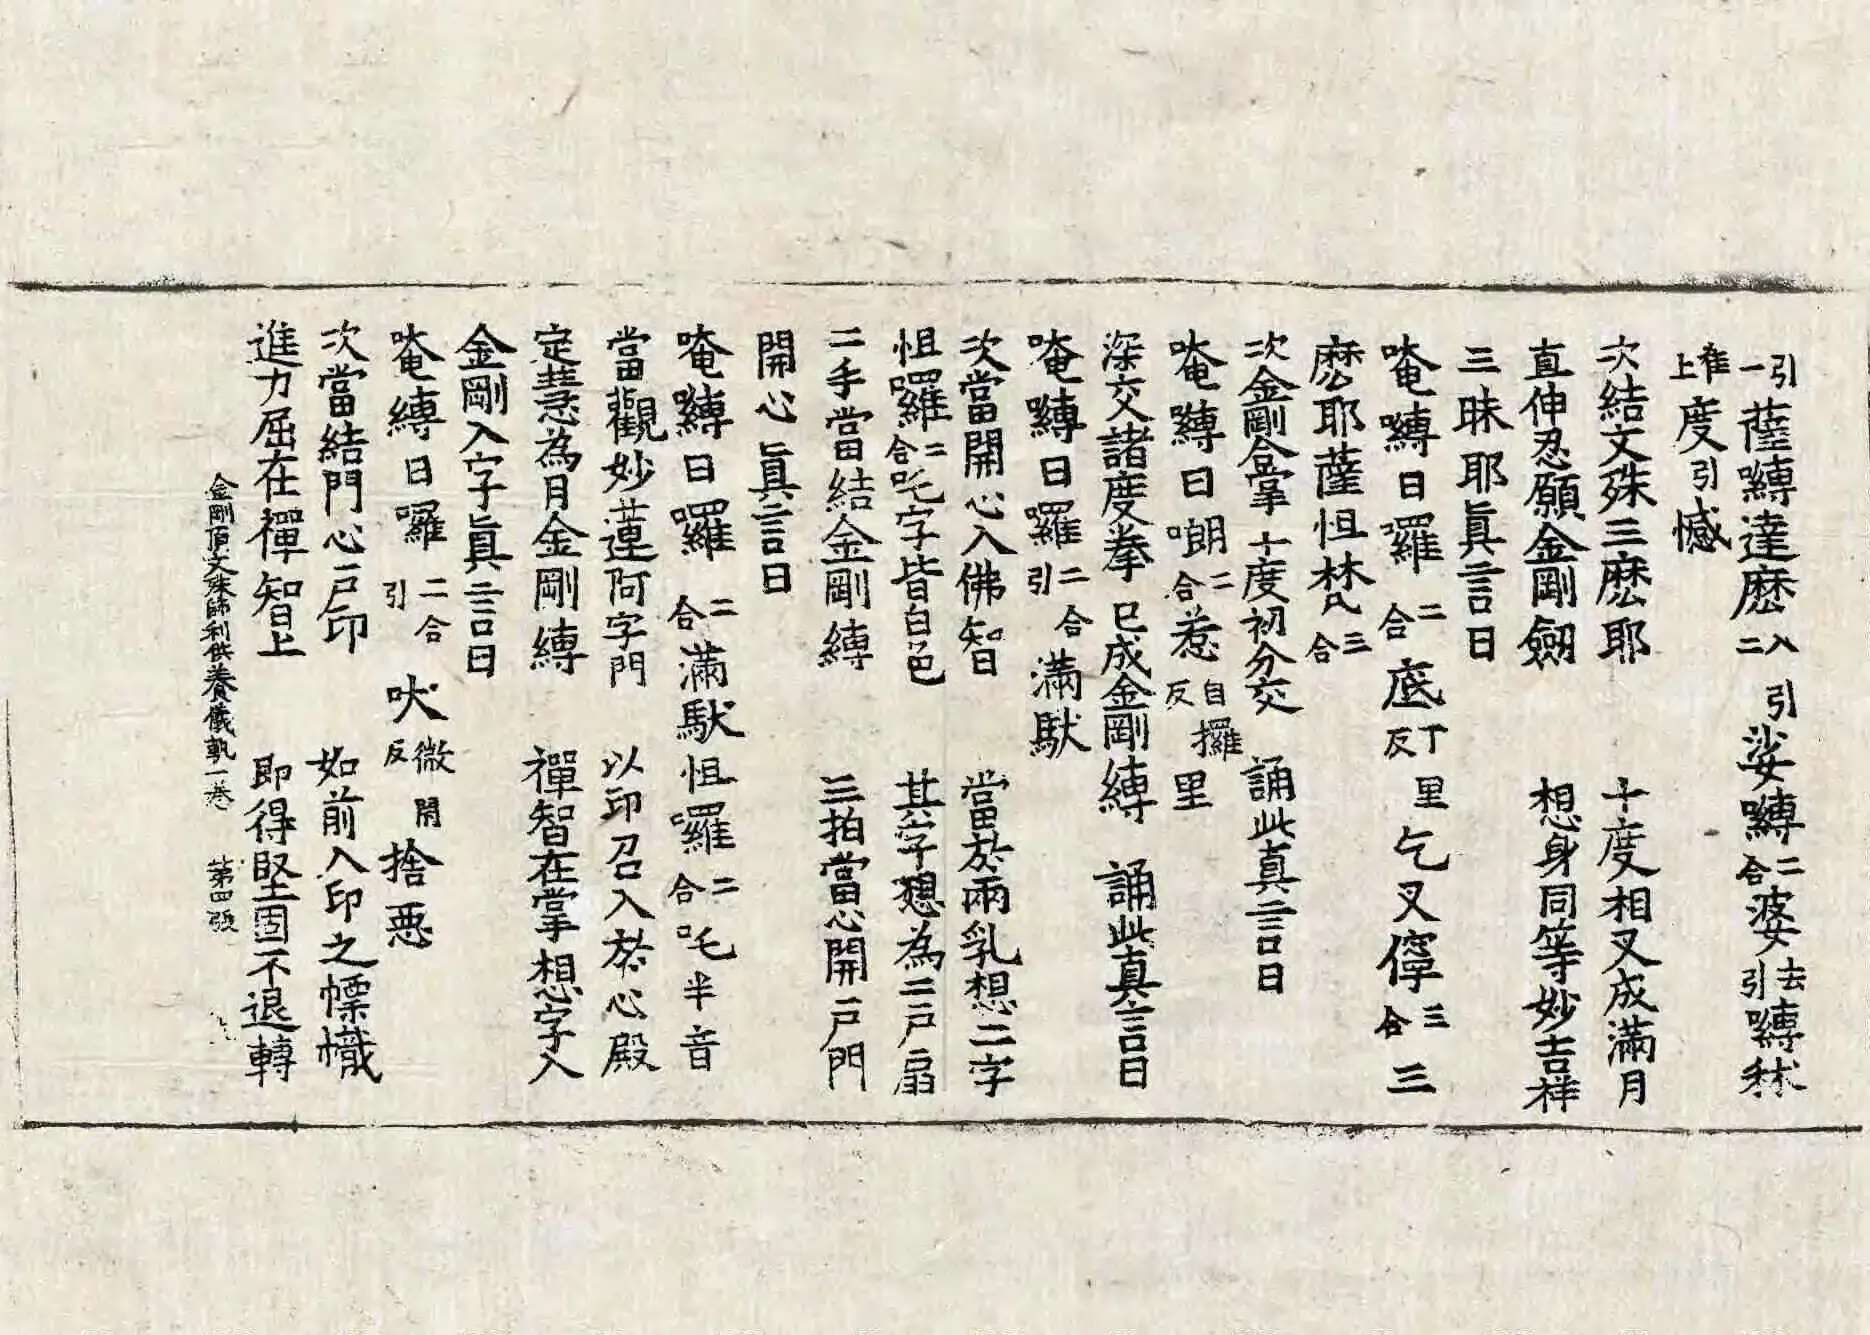 引一薩嚩達麽入二引娑嚩二合婆去引嚩秫
上隹度引憾
次結文殊三麽耶　十度相叉成滿月
直伸忍願金剛劒　想身同等妙吉祥
三昧耶真言曰
唵嚩日囉二合底丁里反乞叉儜三合三
麽耶薩怛梵三合
次金剛合掌　十度初分交　誦此真言曰
唵嚩日𠼝二合惹自攞反里
深交諸度拳　已成金剛縛　誦此真言曰
唵嚩日囉二合引滿馱
次當開心入佛智　當於兩乳想二字
怛囉二合吒字皆白色　其字想為二戶扇
二手當結金剛縛　三拍當心開二戶門
開心真言曰
唵嚩日囉二合滿馱怛囉二合吒半音
當觀妙蓮阿字門　以印召入於心殿
定慧為月金剛縛　禪智在掌想字入
金剛入字真言曰
唵嚩日囉二合引吠微閉反捨惡
次當結門心戶印　如前入印之幖幟
進力屈在禪智上　即得堅固不退轉
金剛頂文殊師利供養儀軌一卷　第四張